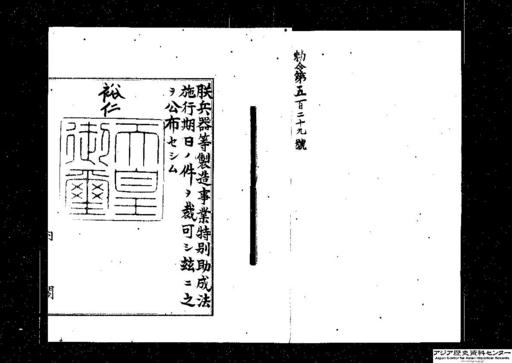 勅令第五百二十九號
朕兵器等製造事業特別助成法
施行期日ノ件ヲ裁可シ玆ニ之
ヲ公布セシム
裕仁
天皇
御璽
内閣
アジア歴史資料センター
Japan Center for Asian Historical Records